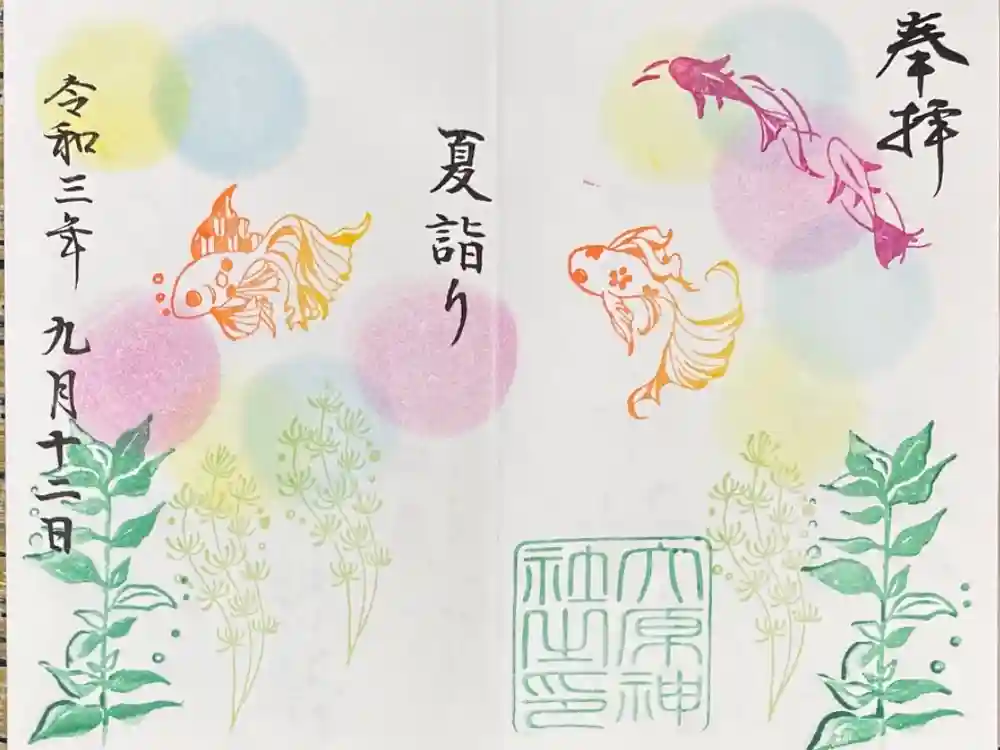 奉拝
大原神
社之印
夏詣り
令和三年 九月十二日